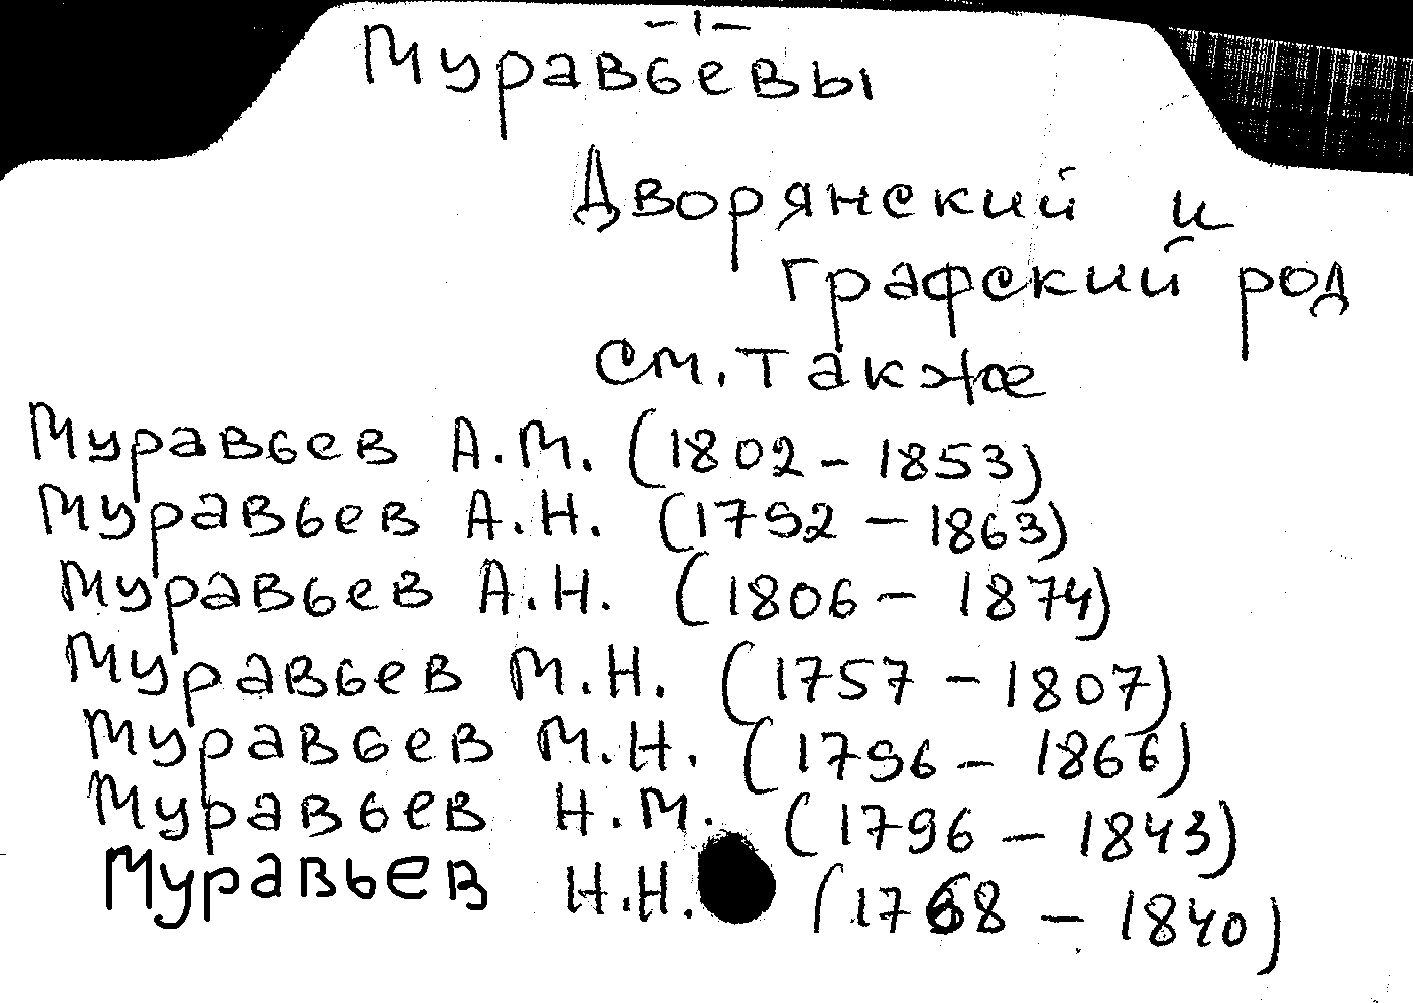 -1-
Муравьевы
Дворянский и
графский род
см. также
Муравьев А.М. (1802 - 1853)
Муравьев А.Н. (1792 - 1863)
Муравьев А.Н. (1806 - 1874)
Муравьев М.Н. (1757 - 1807)
Муравьев М.Н. (1796 - 1866)
Муравьев Н.М. (1796 - 1843)
Муравьев Н.Н. (1768 - 1840)